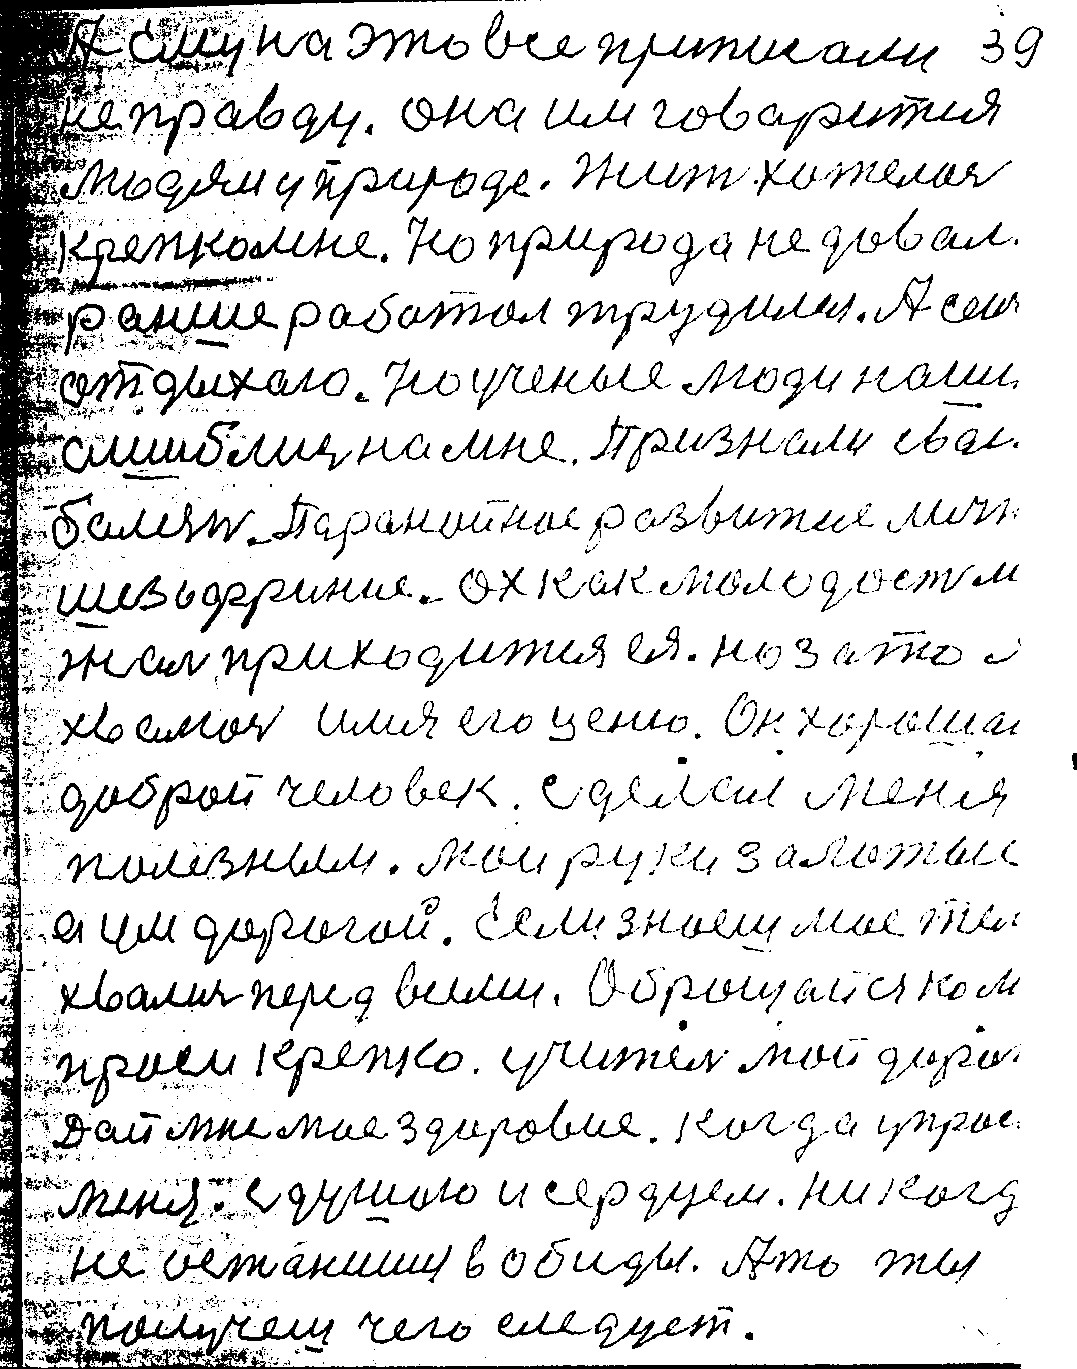 А ему на это все приписали 39
не правду. она им говарится
людям у природе. Жит хотелоя
крепко мне. Но природа не довал.
ранше работал трудился. А сеи
отдыхаю. Но ученые люди наши
ашиблия на мне. Признали сва
балезн. Паранойное развитие личн
шезыфриние. ох как молодост м
жал приходится ся. но зато я
хвалюя имя его ценю. Он хороша
доброй человек. сделал меня
полезным. мои руки залотыи
а ум дорогой. Если знаеш мое тел
хвалися перед всими. Обращайся ком
проси крепко. учител мой доро
Дай мне мое здоровие. когда упрос
меня. с душою и сердцем. никогд
не останишя в обиды. Ато ты
получеш чего следует.